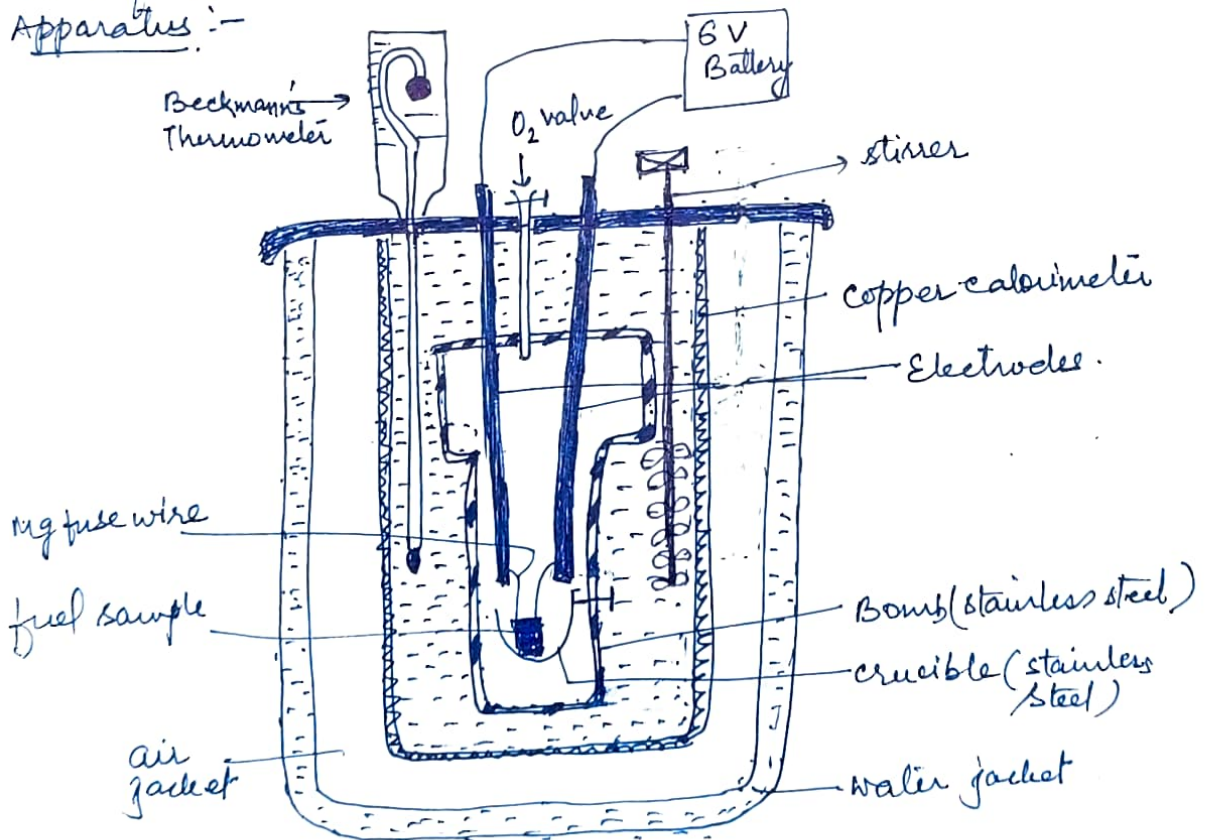 Apparatus :-
6 V
Battery
Beckmann's
Thermometer
O₂ valve
stirrer
copper calorimeter
Electrodes.
Mg fuse wire
fuel sample
Bomb (stainless steel)
crucible (stainless
steel)
air
jacket
water jacket